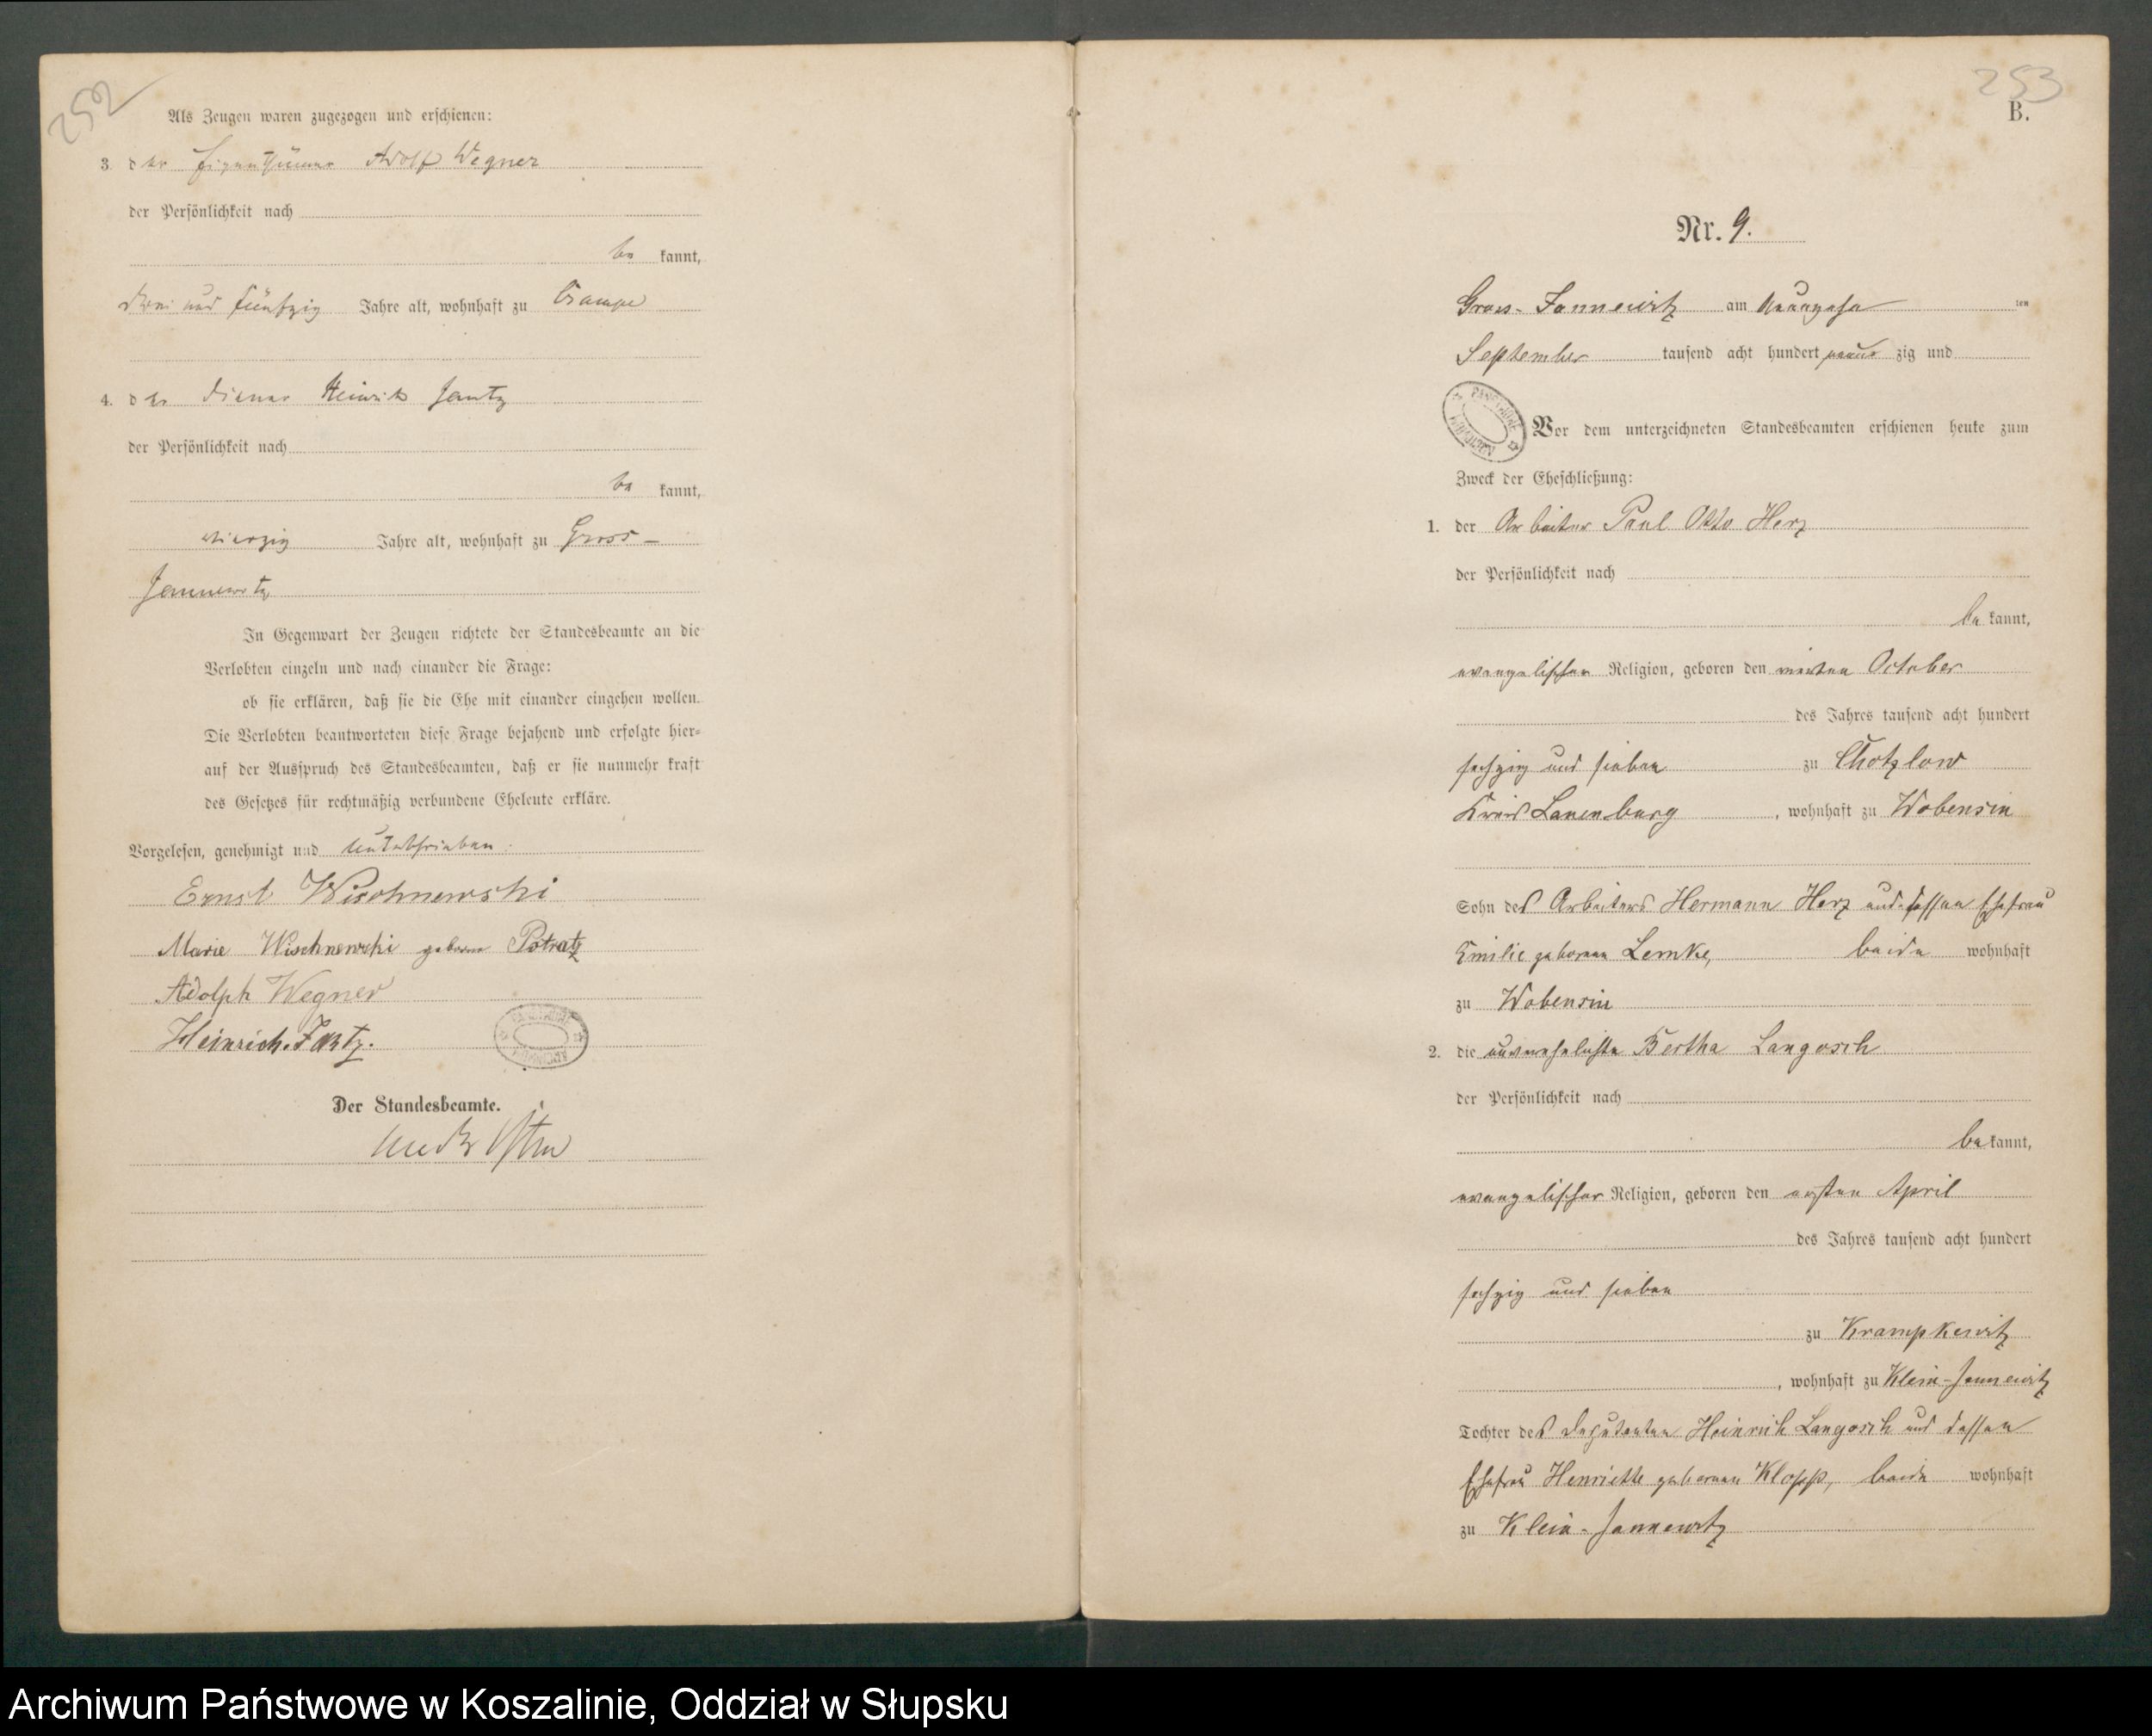 252
Als Zeugen waren zugezogen und erschienen:
3. der Eigenthümer Adolf Wegner
der Persönlichkeit nach
be kannt,
drei und fünfzig Jahre alt, wohnhaft zu Crampe
4. der Diener Heinrich Jantz
der Persönlichkeit nach
be kannt,
vierzig Jahre alt, wohnhaft zu Gross-
Jannewitz
In Gegenwart der Zeugen richtete der Standesbeamte an die
Verlobten einzeln und nach einander die Frage:
ob sie erklären, daß sie die Ehe mit einander eingehen wollen.
Die Verlobten beantworteten diese Frage bejahend und erfolgte hier-
auf der Ausspruch des Standesbeamten, daß er sie nunmehr kraft
des Gesetzes für rechtmäßig verbundene Eheleute erkläre.
Vorgelesen, genehmigt und unterschrieben.
Ernst Wischnewski
Marie Wischnewski geborne Potratz
Adolph Wegner
Heinrich Jantz.
Der Standesbeamte.
253
B.
Nr. 9.
Gross-Jannewitz am ten
September tausend acht hundert neun zig und
Vor dem unterzeichneten Standesbeamten erschienen heute zum
Zweck der Eheschließung:
1. der Arbeiter Paul Otto Herz
der Persönlichkeit nach
be kannt,
evangelischen Religion, geboren den vierten October
des Jahres tausend acht hundert
sechzig und sieben zu Chotzlow
Kreis Lauenburg, wohnhaft zu Wobensin
Sohn des Arbeiters Hermann Herz und dessen Ehefrau
Emilie geborene Lemke, beide wohnhaft
zu Wobensin
2. die unverehelichte Bertha Langosch
der Persönlichkeit nach
be kannt,
evangelischer Religion, geboren den ersten April
des Jahres tausend acht hundert
sechzig und sieben
zu Krampkewitz
, wohnhaft zu Klein-Jannewitz
Tochter des Deputanten Heinrich Langosch und dessen
Ehefrau Henriette geborene Klopp, beide wohnhaft
zu Klein-Jannewitz
Archiwum Państwowe w Koszalinie, Oddział w Słupsku